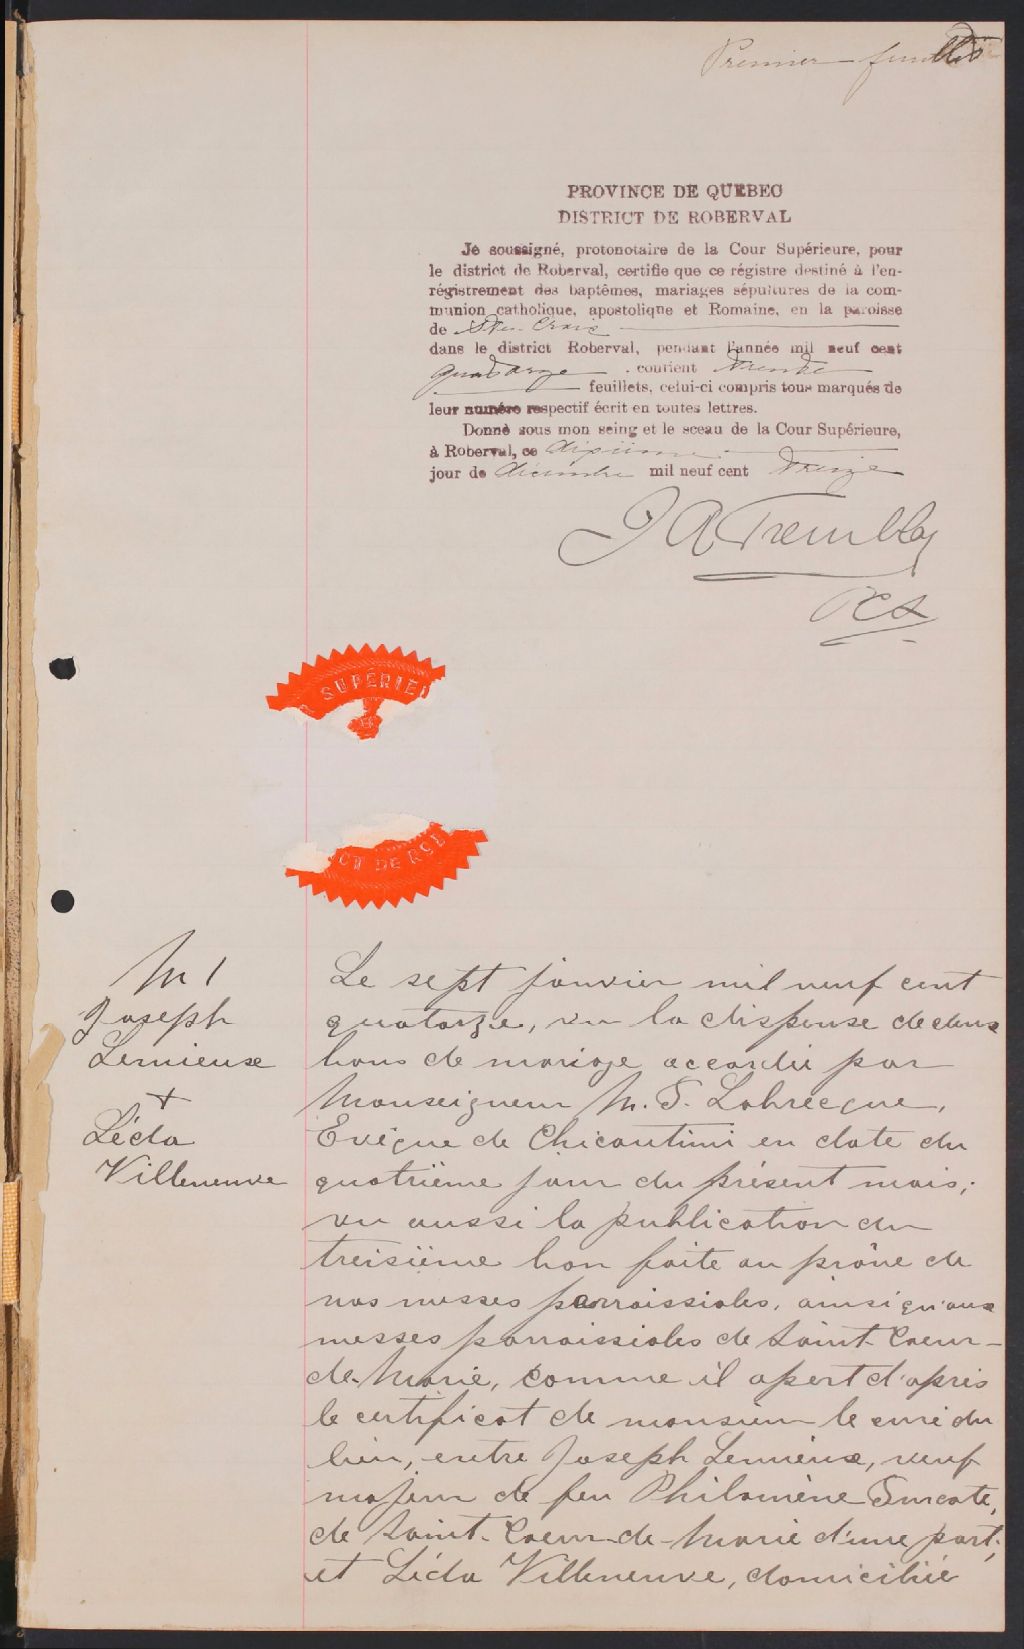 Premier feuillet
PROVINCE DE QUEBEC
DISTRICT DE ROBERVAL
Je soussigné, protonotaire de la Cour Supérieure, pour
le district de Roberval, certifie que ce régistre destiné à l'en-
régistrement des baptêmes, mariages sépultures de la com-
munion catholique, apostolique et Romaine, en la paroisse
de Ste. Croix
dans le district Roberval, pendant l'année mil neuf cent
quatorze . contient trente
feuillets, celui-ci compris tous marqués de
leur numéro respectif écrit en toutes lettres.
Donné sous mon seing et le sceau de la Cour Supérieure,
à Roberval, ce dixième
jour de décembre mil neuf cent treize
J A Tremblay
PCS
R SUPÉRIE
CT DE ROB
M 1
Joseph
Lemieux
+
Léda
Villeneuve
Le sept janvier mil neuf cent
quatorze, vu la dispense de deux
bans de mariage accordée par
Monseigneur M. T. Labrecque,
Evêque de Chicoutimi en date du
quatrième jour du présent mois;
vu aussi la publication du
troisième ban faite au prône de
nos messes parroissiales, ainsi qu'aux
messes parroissiales de Saint-Coeur-
de-Marie, comme il apert d'après
le certificat de monsieur le curé du
lieu, entre Joseph Lemieux, veuf
majeur de feu Philomène Turcote,
de Saint-Coeur-de-Marie d'une part;
et Léda Villeneuve, domiciliée